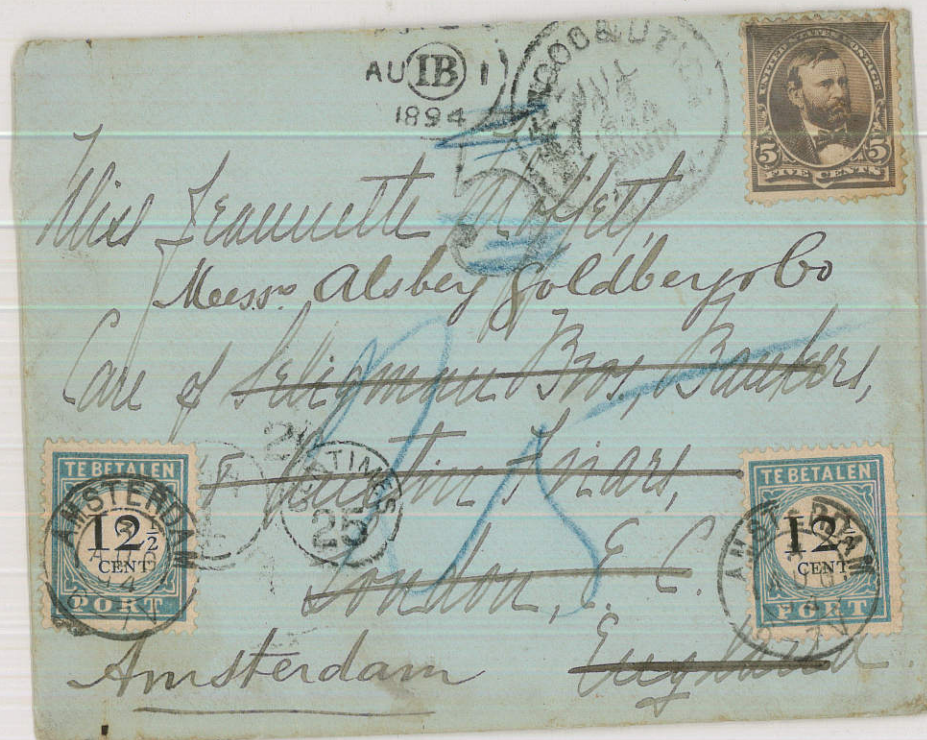 AU IB 1
1894
& UTICA
UNITED STATES POSTAGE
5 5
FIVE CENTS
5
Miss Jeannette
Messrs Alsberg Goldberg & Co
Care of Seligman Bros, Bankers,
25
Austin Friars,
CENTIMES
25
London, E. C.
England.
Amsterdam
TE BETALEN
12½
CENT
PORT
AMSTERDAM
TE BETALEN
12½
CENT
PORT
AMSTERDAM